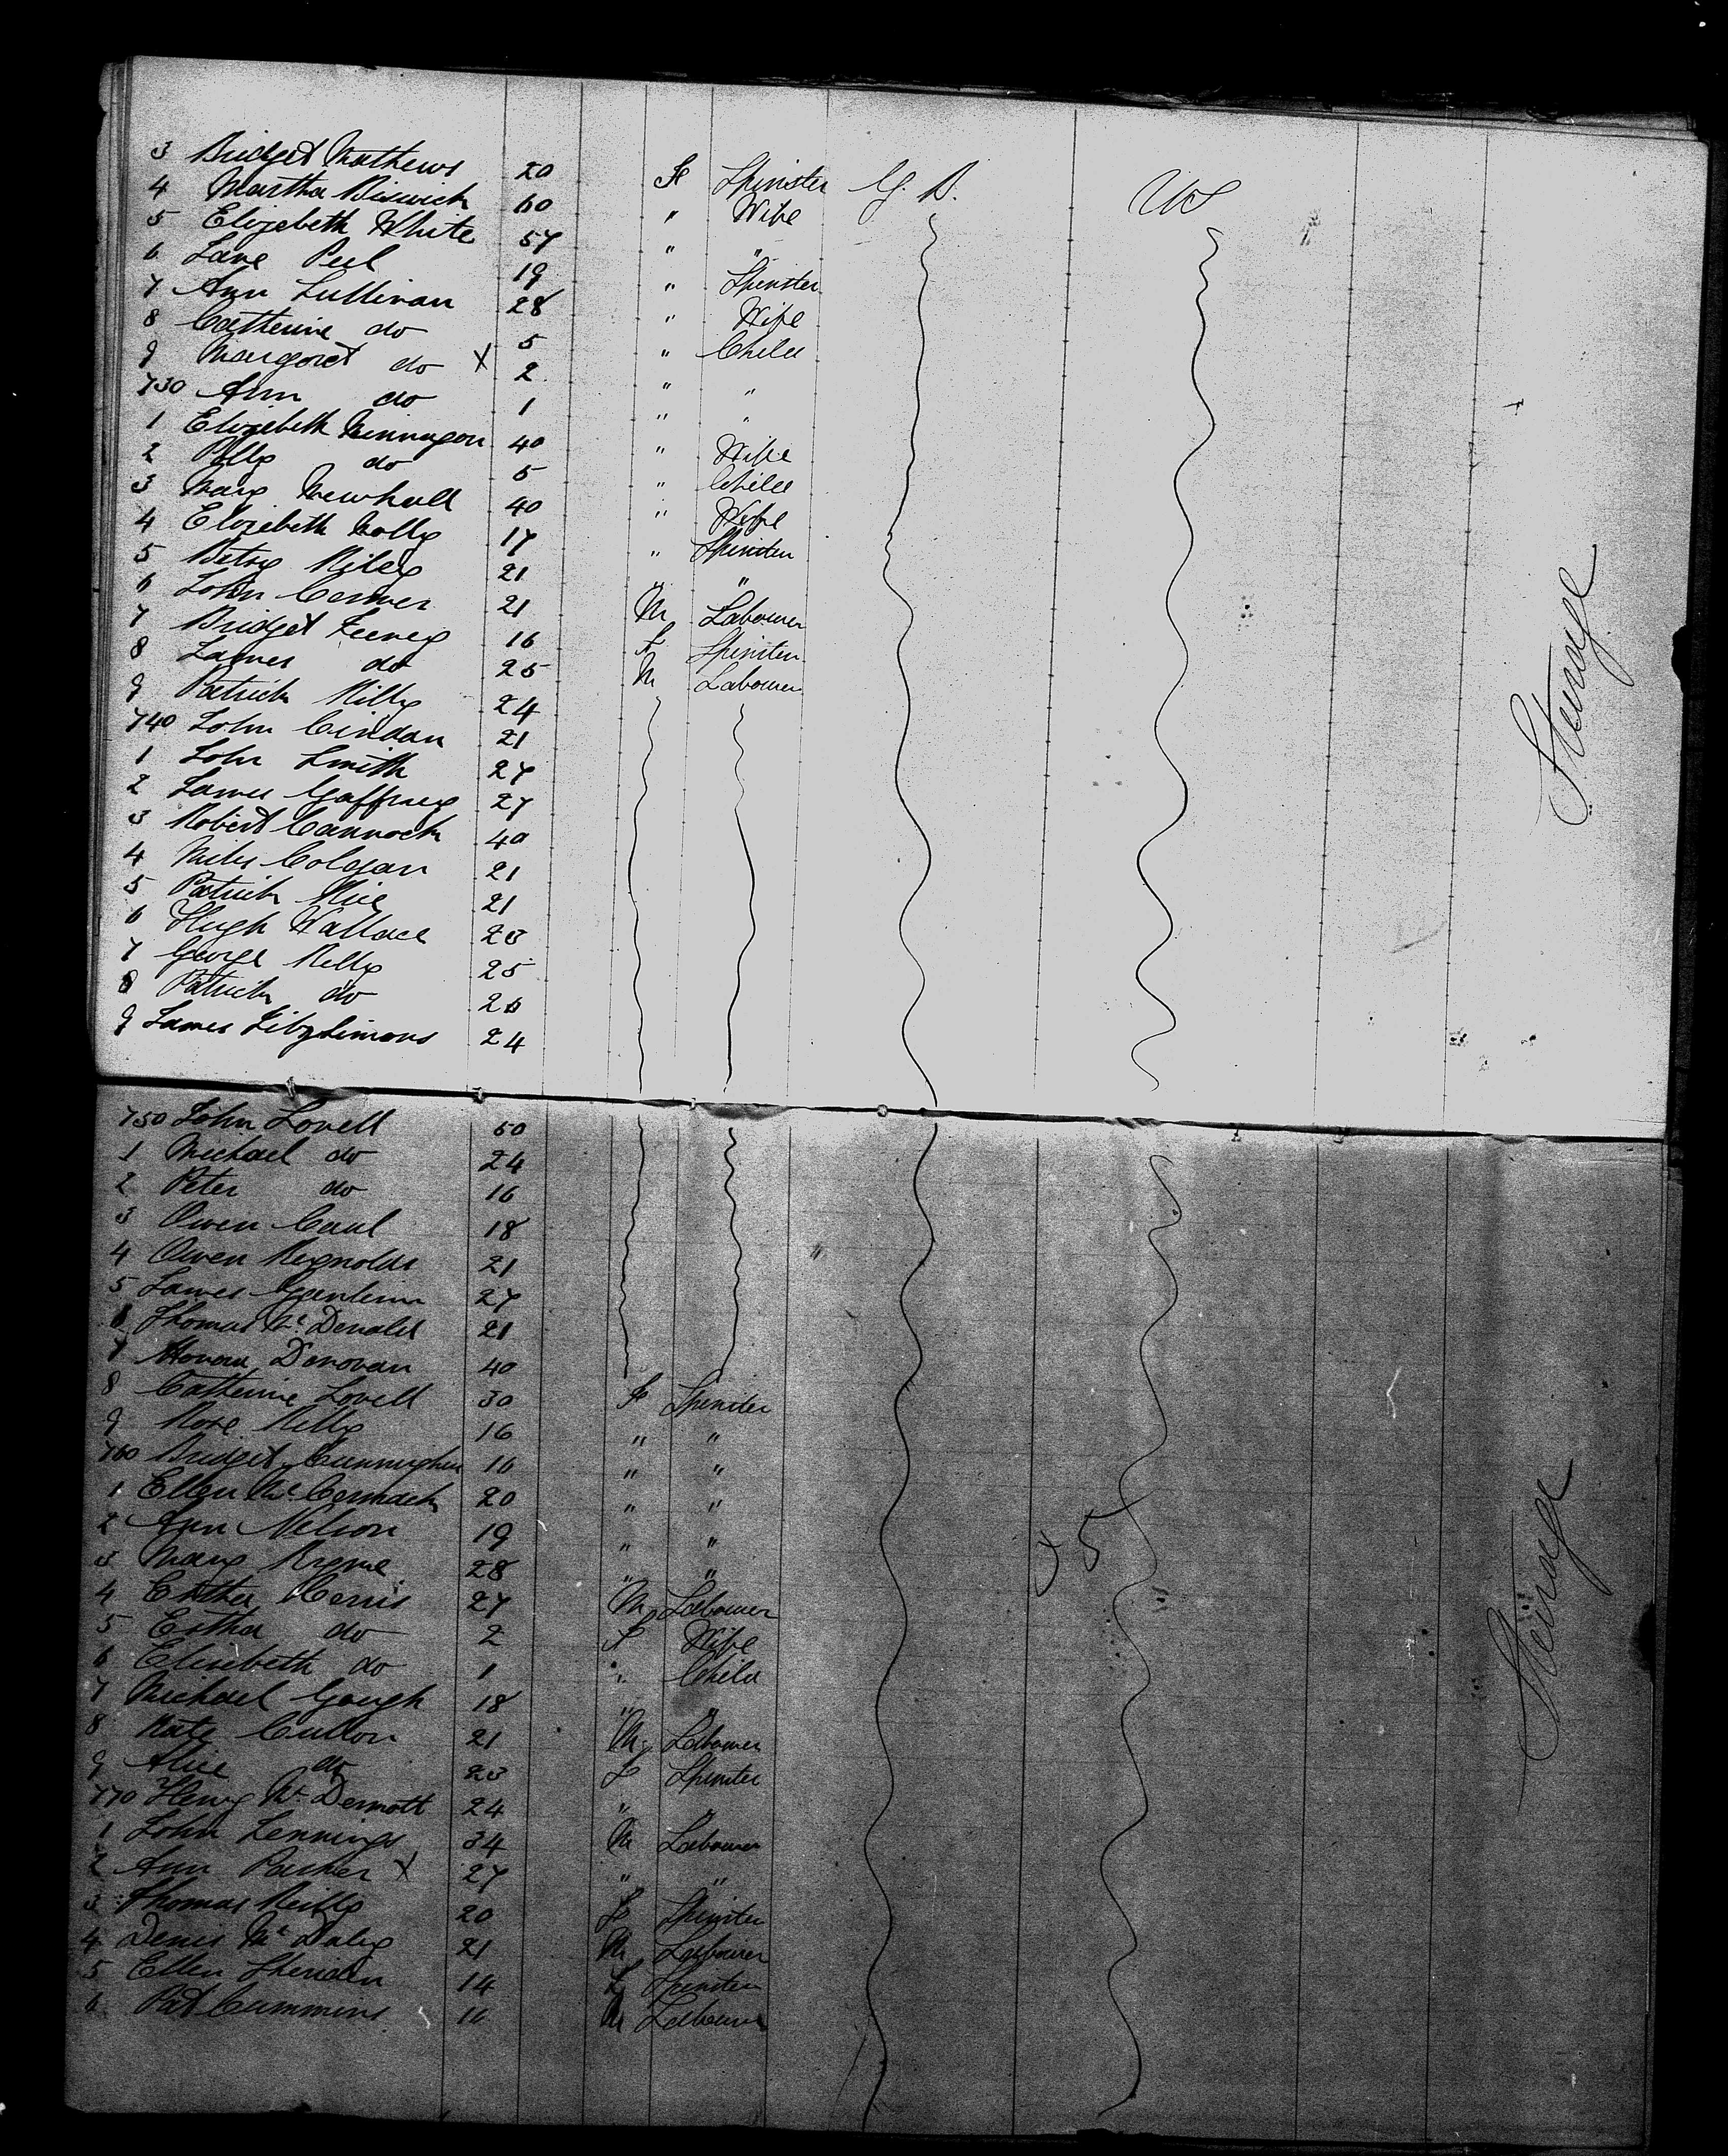 3 Bridget Mathews 20 F Spinster G. B. US
4 Martha Biswick 60 " Wife
5 Elizabeth White 57 " "
6 Jane Peel 19 " Spinster
7 Ann Sullivan 28 " Wife
8 Catherine do 5 " Child
9 Margaret do X 2 " "
730 Ann do 1 " "
1 Elizabeth 40 " Wife
2 Polly do 5 " Child
3 Mary Newhall 40 " Wife
4 Elizabeth Nolly 17 " Spinster
5 Betsy Riley 21 " "
6 John 21 M Labourer
7 Bridget Feeney 16 F Spinster
8 James do 25 M Labourer
9 Patrick Killy 24
740 John Cindan 21
1 John Smith 27
2 James Gaffney 27
3 Robert Cannock 40
4 Miles Colgan 21
5 Patrick Rice 21
6 Hugh Wallace 23
7 George Kelly 25
8 Patrick do 26
9 James FitzSimons 24
Steerage
750 John Lovell 50
1 Michael do 24
2 Peter do 16
3 Owen Caul 18
4 Owen Reynolds 21
5 James 27
6 Thomas Mc Donald 21
7 Donovan 40
8 Catherine Lovell 30 F Spinster
9 Rose Kelly 16 " "
760 Bridget Cunningham 16 " "
1 Ellen Mc Cormack 20 " "
2 Ann Nelson 19 " "
3 Mary Byrne 28 " "
4 Esther Harris 27 M Labourer
5 Esther do 2 F Wife
6 Elizabeth do 1 " Child
7 Michael Gough 18 " "
8 Kate Cullon 21 M Labourer
9 Alice do 23 F Spinster
770 Henry Mc Dermott 24 " "
1 John Jennings 34 M Labourer
2 Ann Parker X 27 " "
3 Thomas Reilly 20 F Spinster
4 Denis Mc Daly 21 M Labourer
5 Ellen Sheridan 14 F Spinster
6 Pat Cummins 16 M Labourer
Steerage